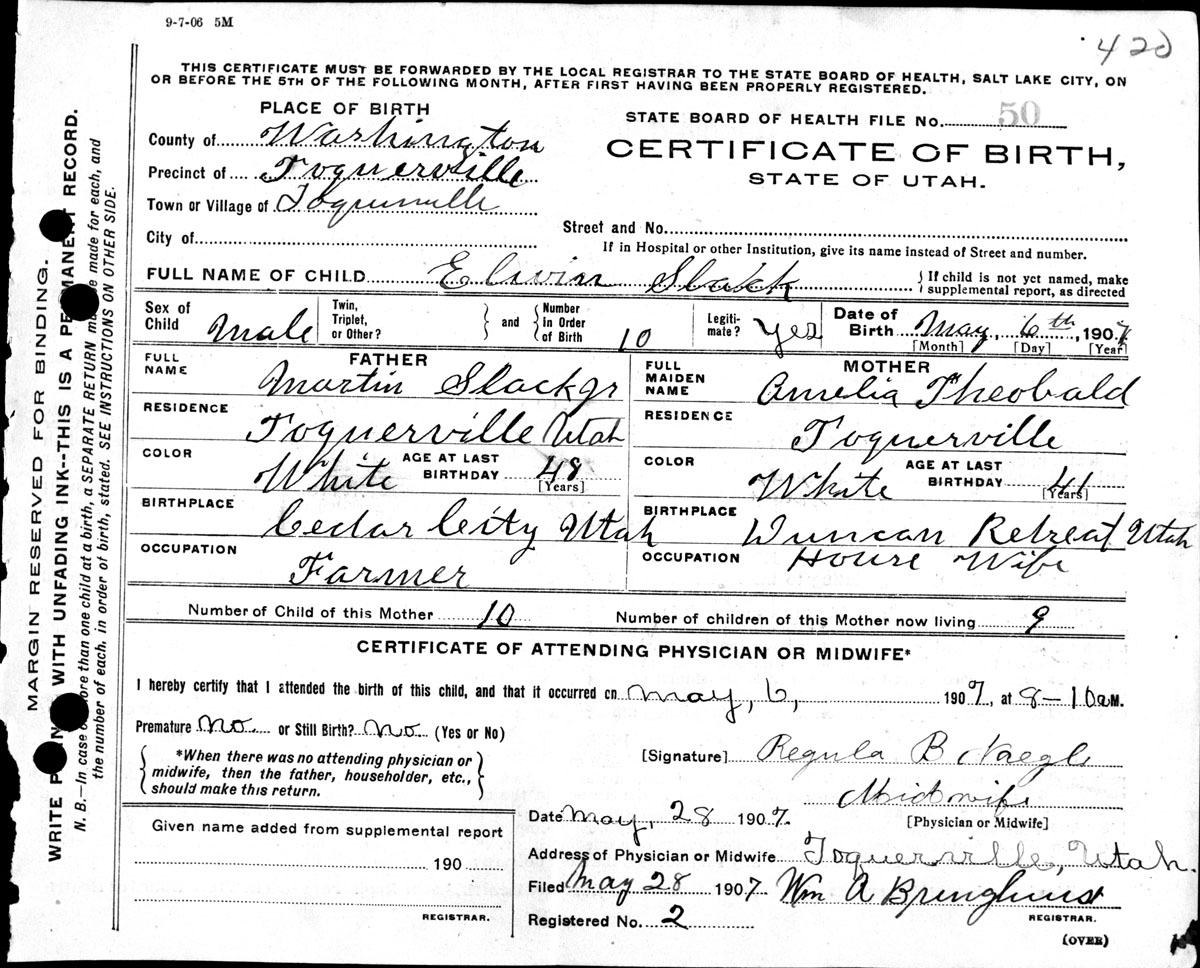 9-7-06 5M
420
THIS CERTIFICATE MUST BE FORWARDED BY THE LOCAL REGISTRAR TO THE STATE BOARD OF HEALTH, SALT LAKE CITY, ON
OR BEFORE THE 5TH OF THE FOLLOWING MONTH, AFTER FIRST HAVING BEEN PROPERLY REGISTERED.
PLACE OF BIRTH
STATE BOARD OF HEALTH FILE No. 50
County of Washington
CERTIFICATE OF BIRTH,
STATE OF UTAH.
Precinct of Toquerville
Town or Village of Toquerville
Street and No.
City of
If in Hospital or other Institution, give its name instead of Street and number.
FULL NAME OF CHILD Elwin Slack
{ If child is not yet named, make
supplemental report, as directed
Sex of Child Male
Twin, Triplet, or Other? } and { Number in Order of Birth 10
Legiti-mate? Yes
Date of Birth May, 6th, 1907
[Month] [Day] [Year]
FATHER
FULL NAME Martin Slack jr
RESIDENCE Toquerville Utah
COLOR White AGE AT LAST BIRTHDAY 48
[Years]
BIRTHPLACE Cedar City Utah
OCCUPATION Farmer
MOTHER
FULL MAIDEN NAME Amelia Theobald
RESIDENCE Toquerville
COLOR White AGE AT LAST BIRTHDAY 41
[Years]
BIRTHPLACE Duncan Retreat Utah
OCCUPATION House Wife
Number of Child of this Mother 10 Number of children of this Mother now living 9
CERTIFICATE OF ATTENDING PHYSICIAN OR MIDWIFE*
I hereby certify that I attended the birth of this child, and that it occurred on May, 6, 1907, at 8-10 a M.
Premature No or Still Birth? No (Yes or No)
{ *When there was no attending physician or
midwife, then the father, householder, etc.,
should make this return. }
[Signature] Regula B Naegle
Midwife
[Physician or Midwife]
Date May, 28 1907.
Address of Physician or Midwife Toquerville, Utah.
Filed May 28 1907 Wm A Bringhurst
REGISTRAR.
Registered No. 2
(OVER)
Given name added from supplemental report
190
REGISTRAR.
MARGIN RESERVED FOR BINDING.
WRITE WITH UNFADING INK--THIS IS A PERMANENT RECORD.
N. B.—In case more than one child at a birth, a SEPARATE RETURN made for each, and
the number of each, in order of birth, stated. SEE INSTRUCTIONS ON OTHER SIDE.